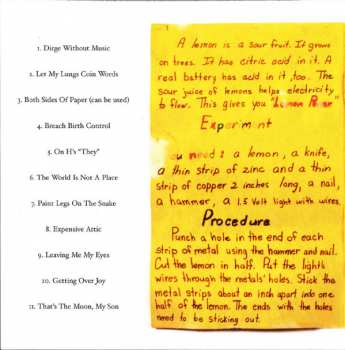 1. Dirge Without Music
2. Let My Lungs Coin Words
3. Both Sides Of Paper (can be used)
4. Breach Birth Control
5. On H's "They"
6. The World Is Not A Place
7. Paint Legs On The Snake
8. Expensive Attic
9. Leaving Me My Eyes
10. Getting Over Joy
11. That's The Moon, My Son
A lemon is a sour fruit. It grows
on trees. It has citric acid in it. A
real battery has acid in it, too. The
sour juice of lemons helps electricity
to flow. This gives you "Lemon Power"
Experiment
ou need: a lemon, a knife,
a thin strip of zinc and a thin
strip of copper 2 inches long, a nail,
a hammer, a 1.5 Volt light with wires.
Procedure
Punch a hole in the end of each
strip of metal using the hammer and nail.
Cut the lemon in half. Put the lights
wires through the metals' holes. Stick the
metal strips about an inch apart into one
half of the lemon. The ends with the holes
need to be sticking out.